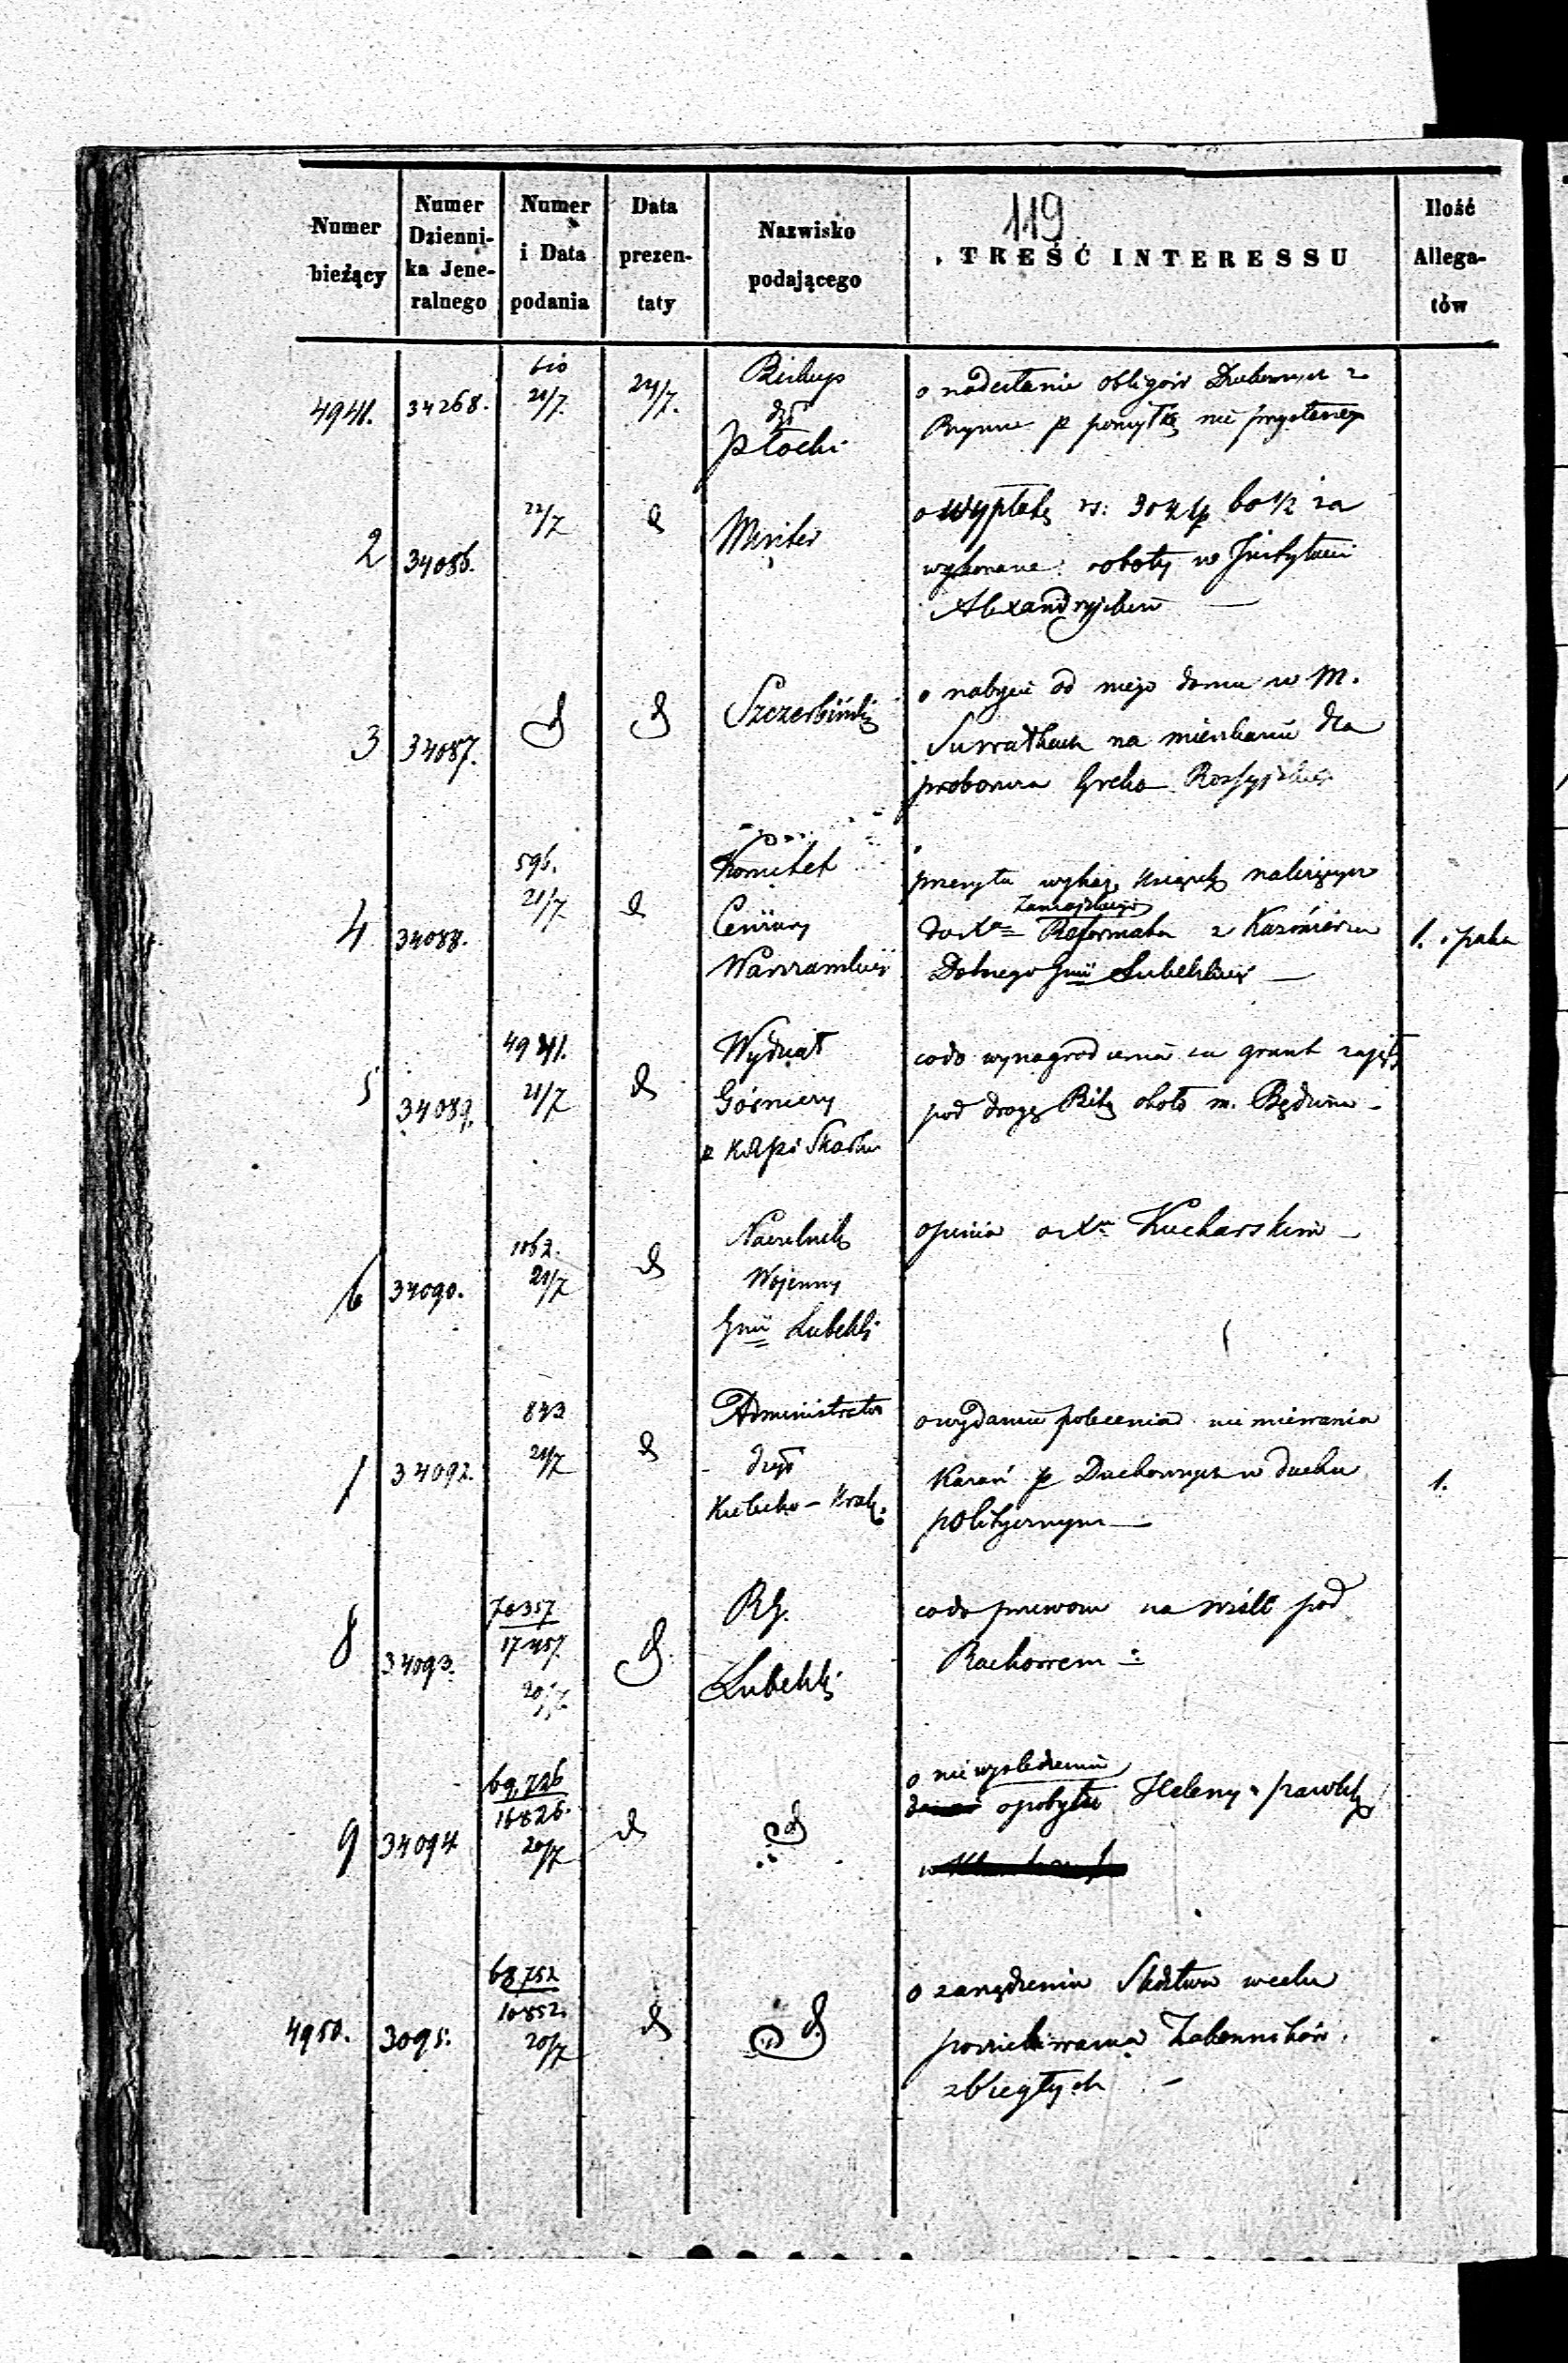 119
Numer bieżący
Numer Dzienni- ka Jene- ralnego
Numer i Data podania
Data prezen- taty
Nazwisko podającego
TREŚĆ INTERESSU
Ilość Allega- tów
4941. 34268. 610 21/7. 24/7.
Biskup
Płocki
o nadesłanie obligów
p pomyłkę nie
2 34086. 22/7 d
o wypłatę rs: 60 1/2 za
wykonane roboty w
3 34087. d d
o nabycie od niego domu w M.
Suwałkach na mieszkanie dla
proboszcza Greko Rossyjskiego
4 34088. 596. 21/7 d
Komitet
Cenzury
przesyła książek należących
Zamojskiego
do Xa Reformata z Kazimierza
Dolnego Gnii Lubelskiej
1. i paka
5 34089. 4941. 21/7 d
Wydział
Górniczy
co do wynagrodzenia za grunt zajęty
pod drogę Bitą około m. Będzina
6 34090. 1062. 21/7 d
Naczelnik
Wojenny
Gnii Lubelskiej
opinia o Xu Kucharskim
7 34092. 843 21/7 d
Administrator
Kielecko-Krak.
o wydanie polecenia nie miewania
Kazań p Duchownych w duchu
politycznym
1.
8 34093. 70357 17457. 20/7 d
RG.
Lubelski
co do przewozu na Wiśle pod
Rachowem
9 34094 69,726 16826. 20/7 d
d
o niewyśledzeniu
o pobytu Heleny Pawlik
4950. 3095. 68752 16852. 20/7 d
d
o zarządzeniu Śledztwa w celu
poszukiwania Zakonników
zbiegłych